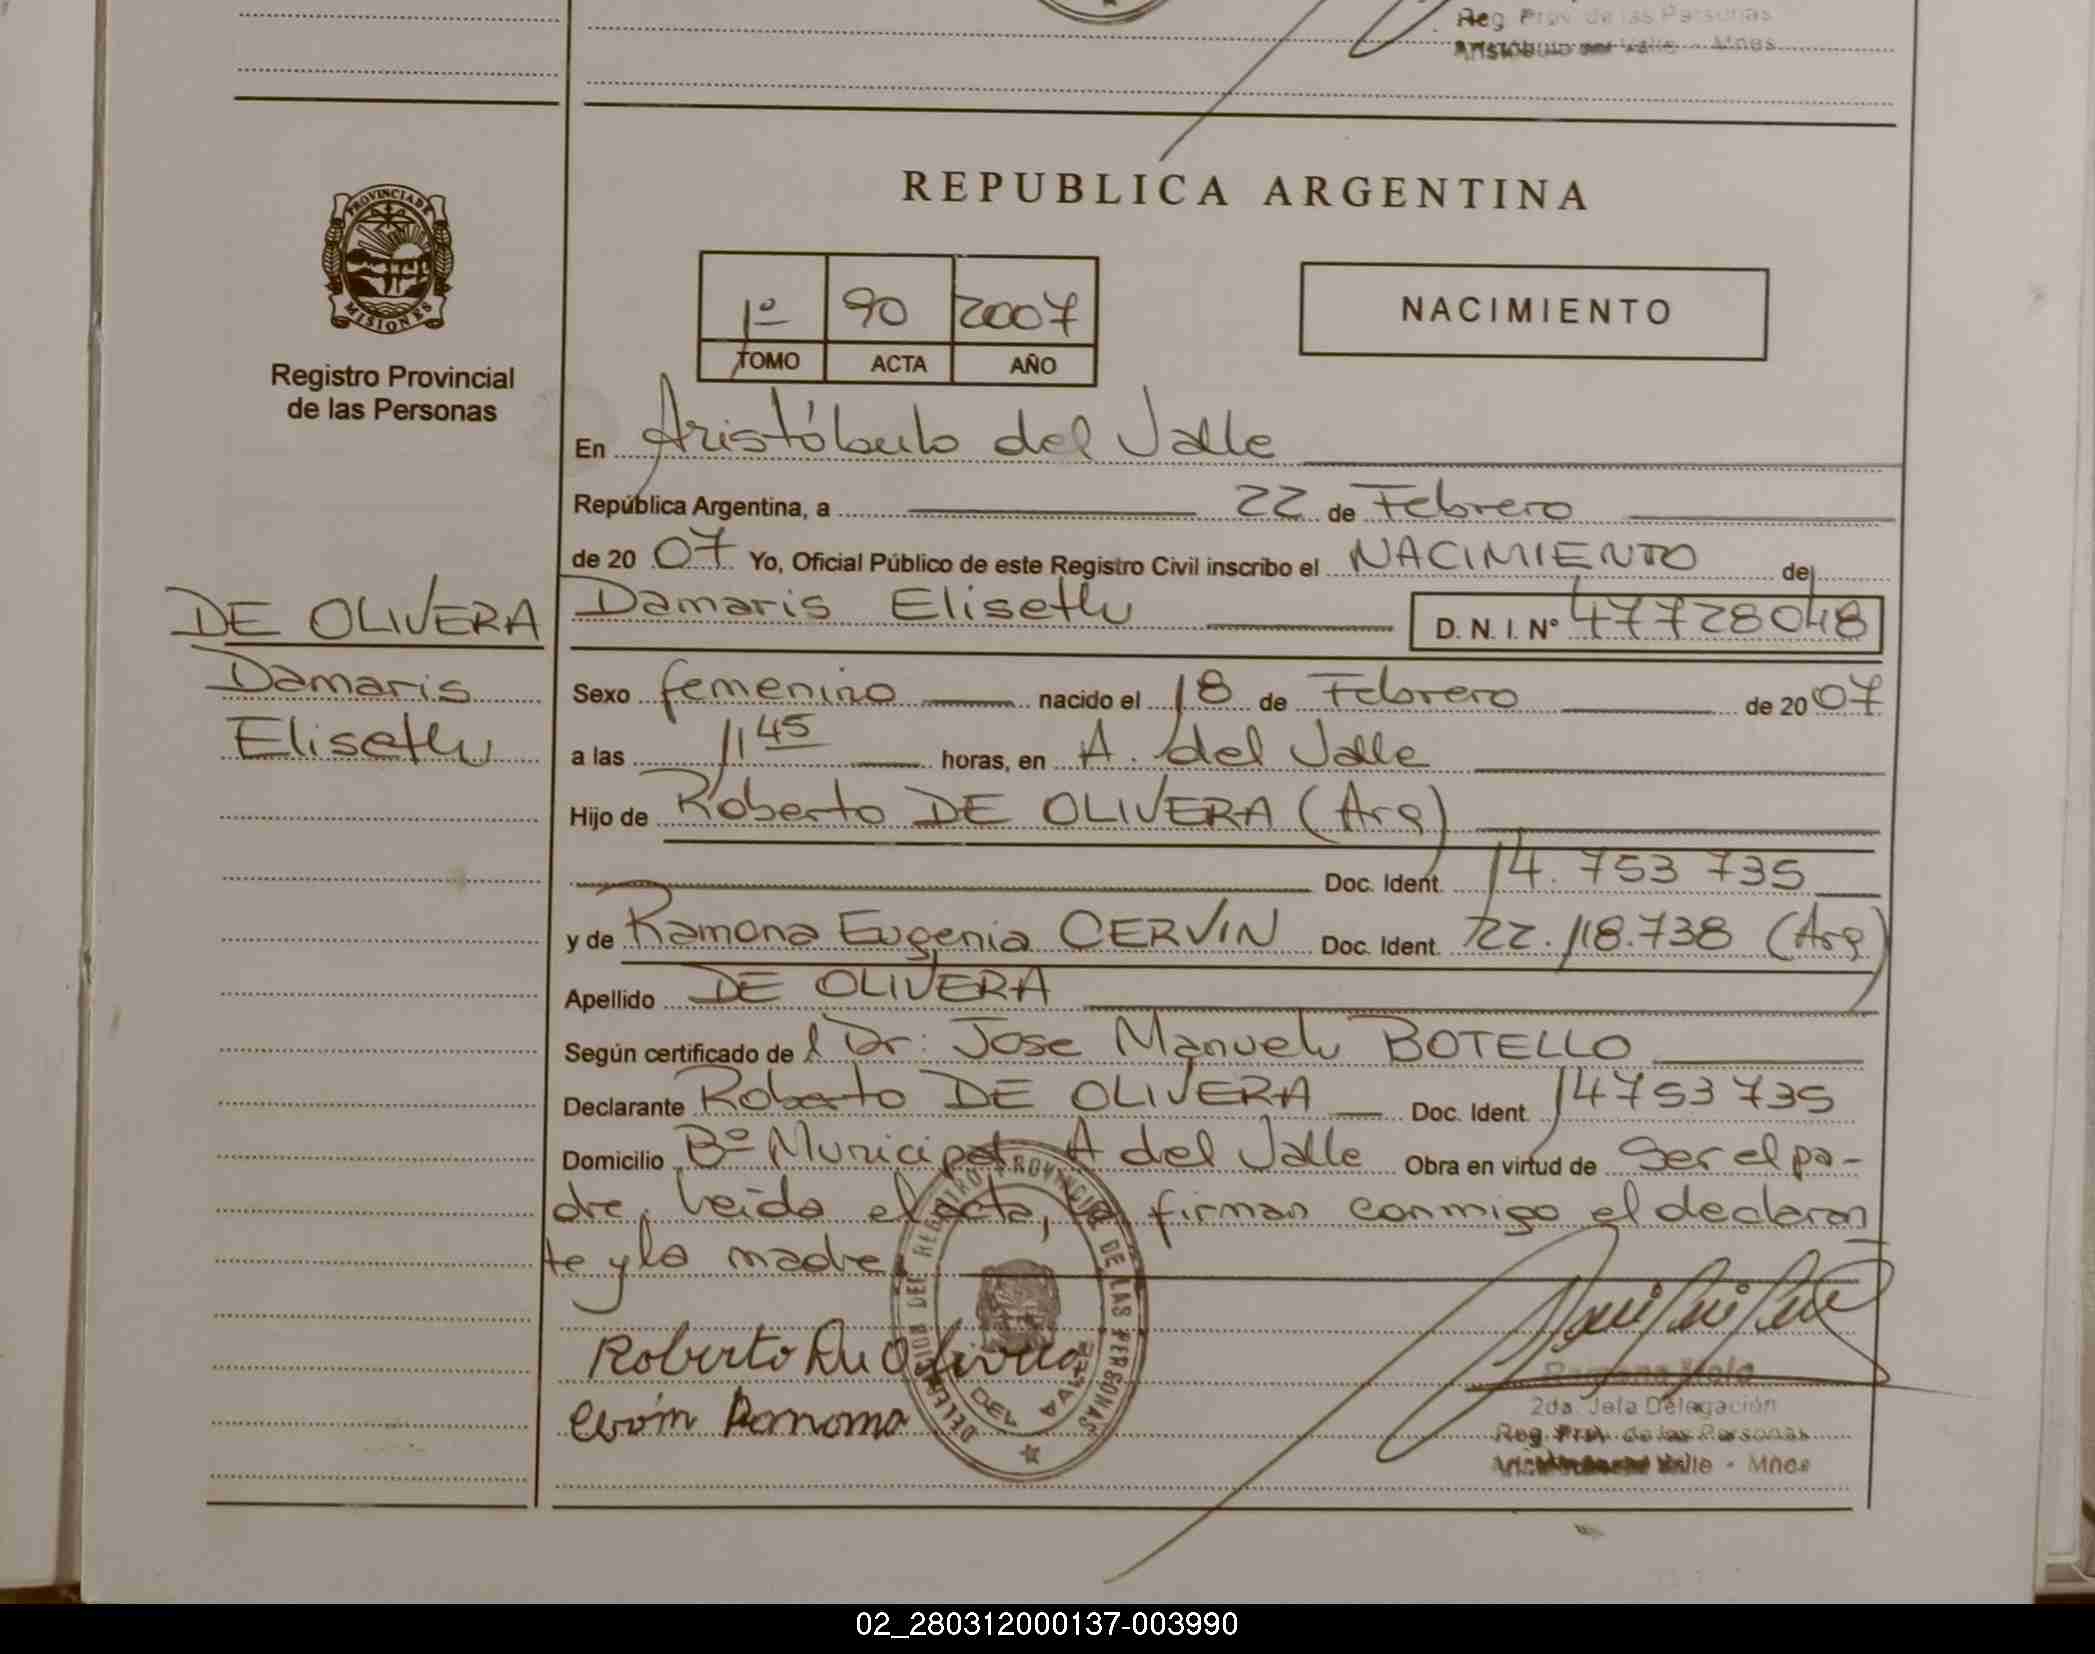 Reg. Prov. de las Personas
Aristóbulo del Valle - Mnes.
PROVINCIA DE
MISIONES
Registro Provincial
de las Personas
REPUBLICA ARGENTINA
1º 90 2007
TOMO ACTA AÑO
NACIMIENTO
En Aristóbulo del Valle
República Argentina, a 22 de Febrero
de 2007 Yo, Oficial Público de este Registro Civil inscribo el NACIMIENTO de
DE OLIVERA
Damaris
Eliseth
Damaris Eliseth D. N. I. Nº 47728048
Sexo femenino nacido el 18 de Febrero de 2007
a las 11 45 horas, en A. del Valle
Hijo de Roberto DE OLIVERA (Arg)
Doc. Ident. 14.753 735
y de Ramona Eugenia CERVIN Doc. Ident. 22.118.738 (Arg)
Apellido DE OLIVERA
Según certificado de l Dr: Jose Manuel BOTELLO
Declarante Roberto DE OLIVERA Doc. Ident. 14753735
Domicilio Bº Municipal A del Valle Obra en virtud de Ser el pa-
dre, leída el acta, la firman conmigo el declaran
te y la madre.
DELEGACION DEL REGISTRO PROVINCIAL DE LAS PERSONAS
DEL VALLE
Roberto De Olivera
Cervin Ramona
2da. Jefa Delegación
Reg. Prov. de las Personas
Valle - Mnes
02_280312000137-003990